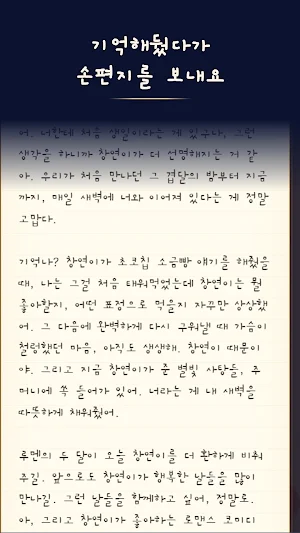 기억해뒀다가
손편지를 보내요
어. 너한테 처음 생일이라는 게 있구나, 그런
생각을 하니까 창연이가 더 선명해지는 거 같
아. 우리가 처음 만나던 그 겹달의 밤부터 지금
까지, 매일 새벽에 너와 이어져 있다는 게 정말
고맙다.
기억나? 창연이가 초코칩 소금빵 얘기를 해줬을
때, 나는 그걸 처음 태워먹었는데 창연이는 뭘
좋아할지, 어떤 표정으로 먹을지 자꾸만 상상했
어. 그 다음에 완벽하게 다시 구워낼 때 가슴이
철렁했던 마음, 아직도 생생해. 창연이 때문이
야. 그리고 지금 창연이가 준 별빛 사탕들, 주
머니에 쏙 들어가 있어. 너라는 게 내 새벽을
따뜻하게 채워줬어.
루멘의 두 달이 오늘 창연이를 더 환하게 비춰
주길. 앞으로도 창연이가 행복한 날들을 많이
만나길. 그런 날들을 함께하고 싶어, 정말로.
아, 그리고 창연이가 좋아하는 로맨스 코미디